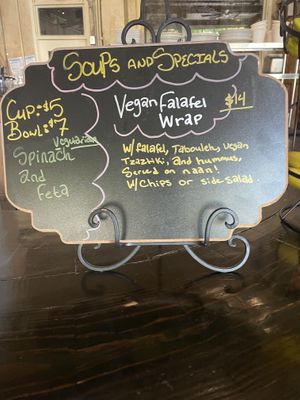 Soups and Specials
Cup: $5
Bowl: $7
Vegetarian
Spinach
and
Feta
Vegan Falafel
Wrap
$14
w/ falafel, Tabouleh, Vegan
Tzaziki, and hummus,
Served on naan!
w/ Chips or side salad